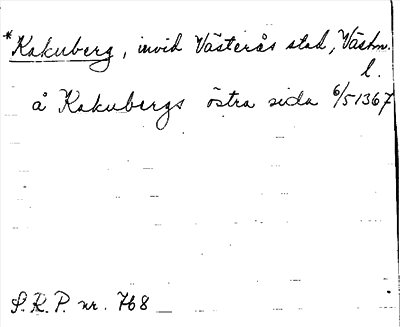 *Kakuberg, invid Västerås stad, Västm.
l.
å Kakubergs östra sida 6/5 1367
S.R.P. nr. 768